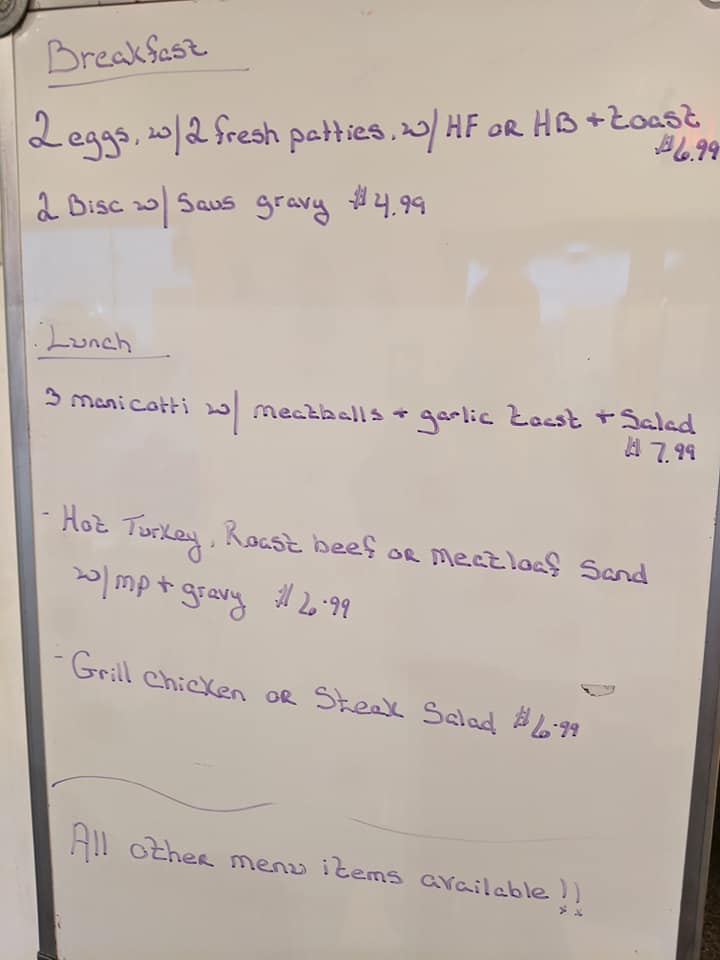 Breakfast
2 eggs, w/ 2 fresh patties, w/ HF OR HB + toast
$6.99
2 Bisc w/ Saus gravy $4.99
Lunch
3 manicotti w/ meatballs + garlic toast + Salad
$7.99
- Hot Turkey, Roast beef OR Meatloaf Sand
w/ mp + gravy $6.99
- Grill Chicken OR Steak Salad $6.99
All other menu items available!!